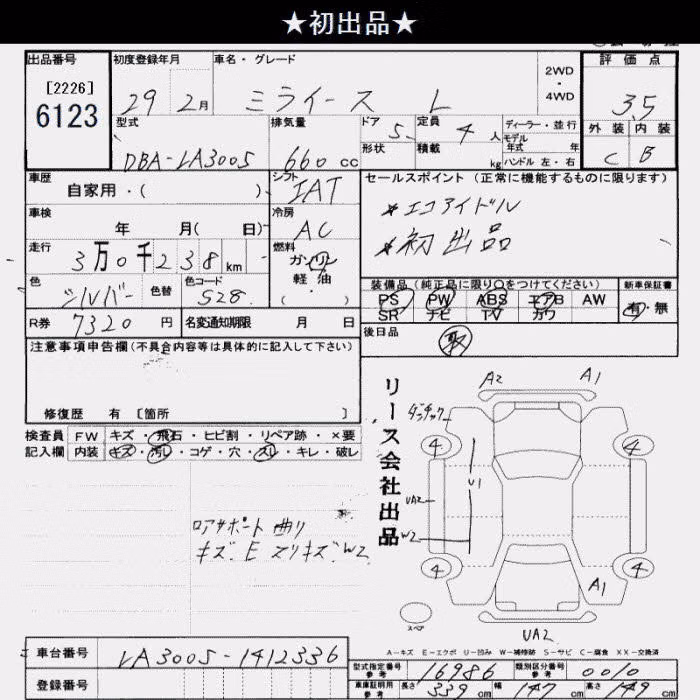 ★初出品★
出品番号 初度登録年月 車名・グレード 2WD ・ 4WD 評価点
[2226] 6123 29 2月 ミライース L 3.5
型式 排気量 ドア 5 定員 4人 ディーラー・並行 外装 内装
形状 積載 kg モデル年式 年
DBA-LA300S 660cc ハンドル 左・右 C B
車歴 自家用・( ) シフト IAT セールスポイント(正常に機能するものに限ります)
車検 年 月( 日) 冷房 AC *エコアイドル
走行 3万0千238km 燃料 ガソリン 軽油 ・ ( ) *初出品
色 シルバー 色替 色コード S28 装備品(純正品に限り○をつけてください) 新車保証書
PS PW ABS エアB AW 有・無
SR ナビ TV カワ
R券 7320円 名変通知期限 月 日 後日品 取
注意事項申告欄(不具合内容等は具体的に記入して下さい)
修復歴 有 [箇所 ]
検査員 FW キズ・飛石・ヒビ割・リペア跡・×要
記入欄 内装 キズ・汚レ・コゲ・穴・スレ・キレ・破レ
リース会社出品
A2 A1
4 4
U1
UA2
W2
4 4
A1
スペア
UA2
ロアサポート曲り
キズ.E スリキズ.W2
A-キズ E-エクボ U-凹み W-補修跡 S-サビ C-腐食 XX-交換済
車台番号 LA300S-1412336 型式指定番号 参考 16986 類別区分番号 参考 0010
登録番号 車庫証明用 参考 長さ 339cm 幅 147cm 高さ 149cm